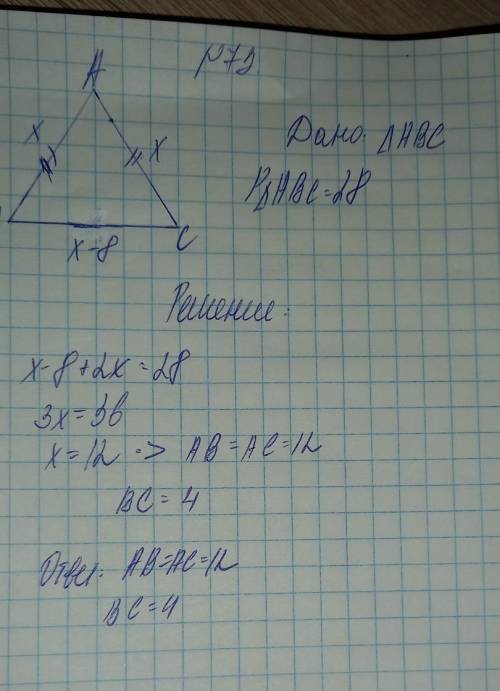 №79
A
x
x
Дано: ΔABC
PΔABC=28
C
x-8
Решение:
x-8+2x=28
3x=36
x=12 => AB=AC=12
BC=4
Ответ: AB=AC=12
BC=4